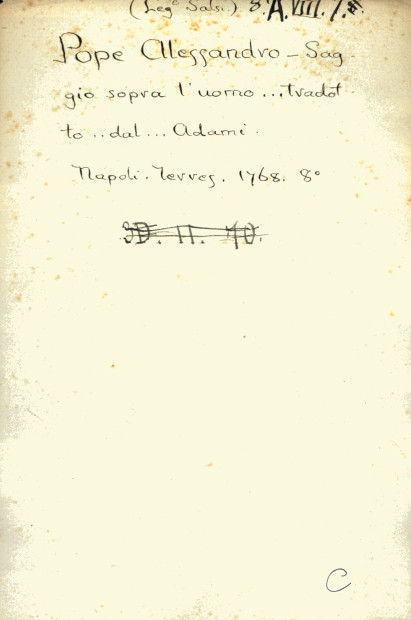 (Legº Salsi.) 8. A. VIII. 7.
Pope Alessandro - Sag-
gio sopra l'uomo ... tradot-
to .. dal ... Adami.
Napoli. Terres. 1768. 8°
3D. II. 40.
C